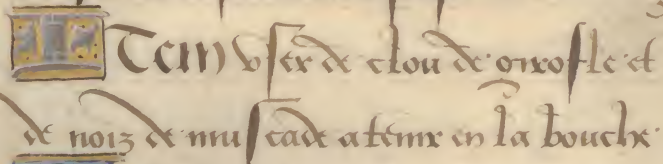 Item vser de clou de girofle et
de noiz de muscade a tenir en la bouche